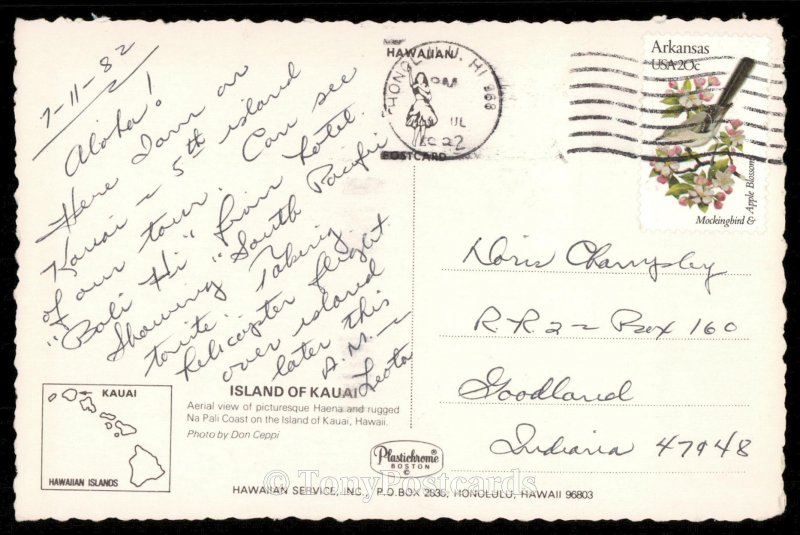 7-11-82
Aloha!
Here I am on
Kauai - 5th island
of our tour. Can see
"Bali Hi" from hotel.
Showing "South Pacific"
tonite. Taking
helicopter flight
over island
later this
A.M. -
Leota
KAUAI
HAWAIIAN ISLANDS
ISLAND OF KAUAI
Aerial view of picturesque Haena and rugged
Na Pali Coast on the Island of Kauai, Hawaii.
Photo by Don Ceppi
Plastichrome®
BOSTON
©
© TonyPostcards
HAWAIIAN SERVICE, INC., P.O. BOX 2835, HONOLULU, HAWAII 96803
HAWAIIAN
HONOLULU, HI 968
PM
JUL
1982
POSTCARD
Arkansas
USA 20c
Mockingbird & Apple Blossom
Doris
R.R. 2 - Box 160
Goodland
Indiana 47948